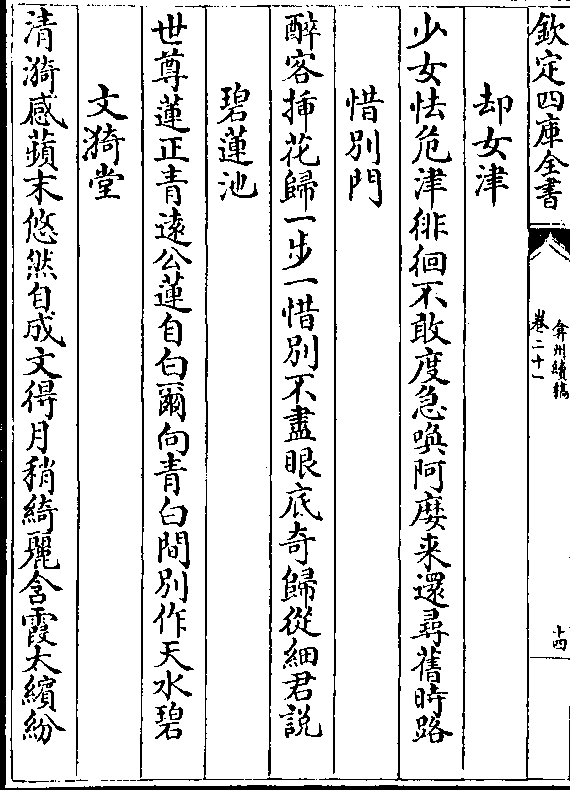 欽定四庫全書
弇州續稿
卷二十一
十四
却女津
少女怯危津徘徊不敢度急喚阿㜑来還尋舊時路
惜別門
醉客揷花歸一步一惜別不盡眼底奇歸從細君説
碧蓮池
世尊蓮正青遠公蓮自白爾向青白間別作天水碧
文漪堂
清漪感蘋末悠然自成文得月稍綺麗含霞太繽紛